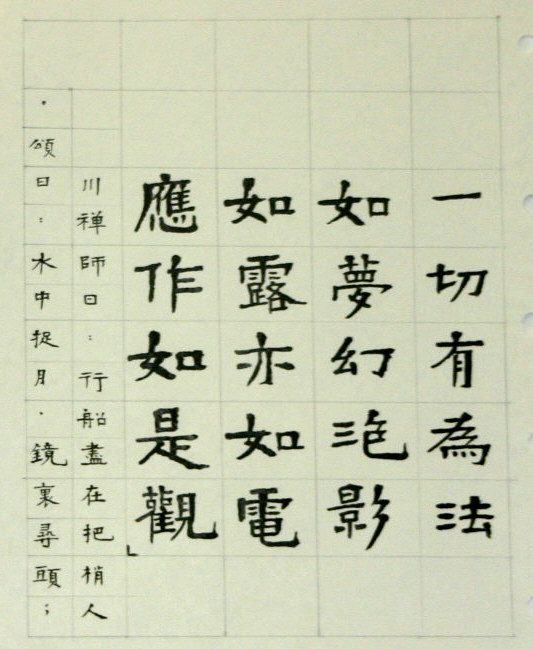 一切有為法
如夢幻泡影
如露亦如電
應作如是觀
川禅師曰:行船盡在把梢人
.頌曰:水中捉月.鏡裏尋頭;